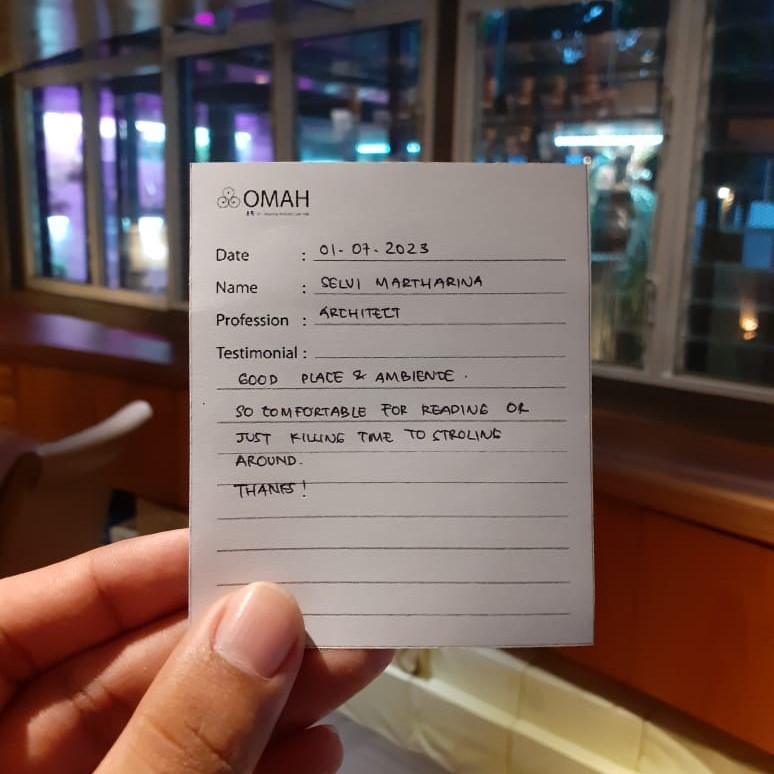 OMAH
Date : 01-07-2023
Name : SELVI MARTHARINA
Profession : ARCHITECT
Testimonial :
GOOD PLACE & AMBIENCE.
SO COMFORTABLE FOR READING OR
JUST KILLING TIME TO STROLING
AROUND.
THANKS!